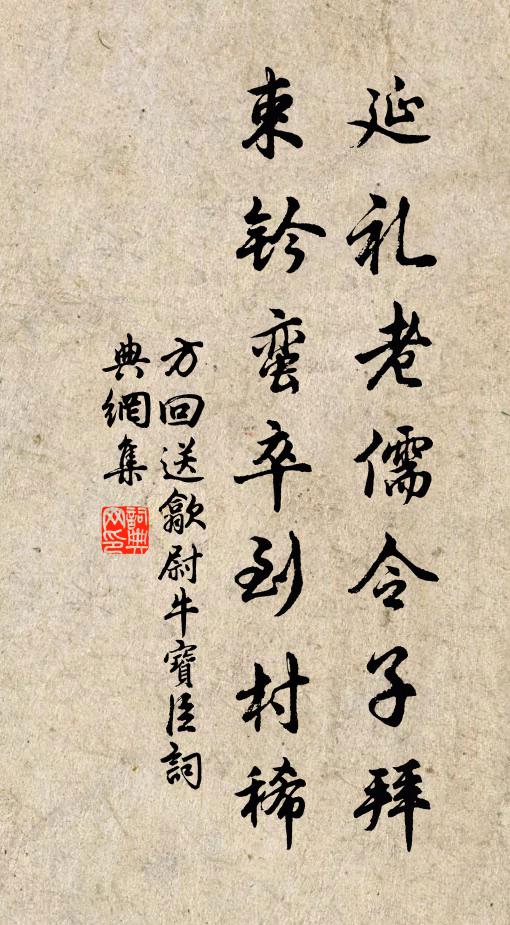 延礼老儒令子拜
束鈐蛮卒到村稀
方回送歙尉牛寶臣詞
典網集
詞典网印